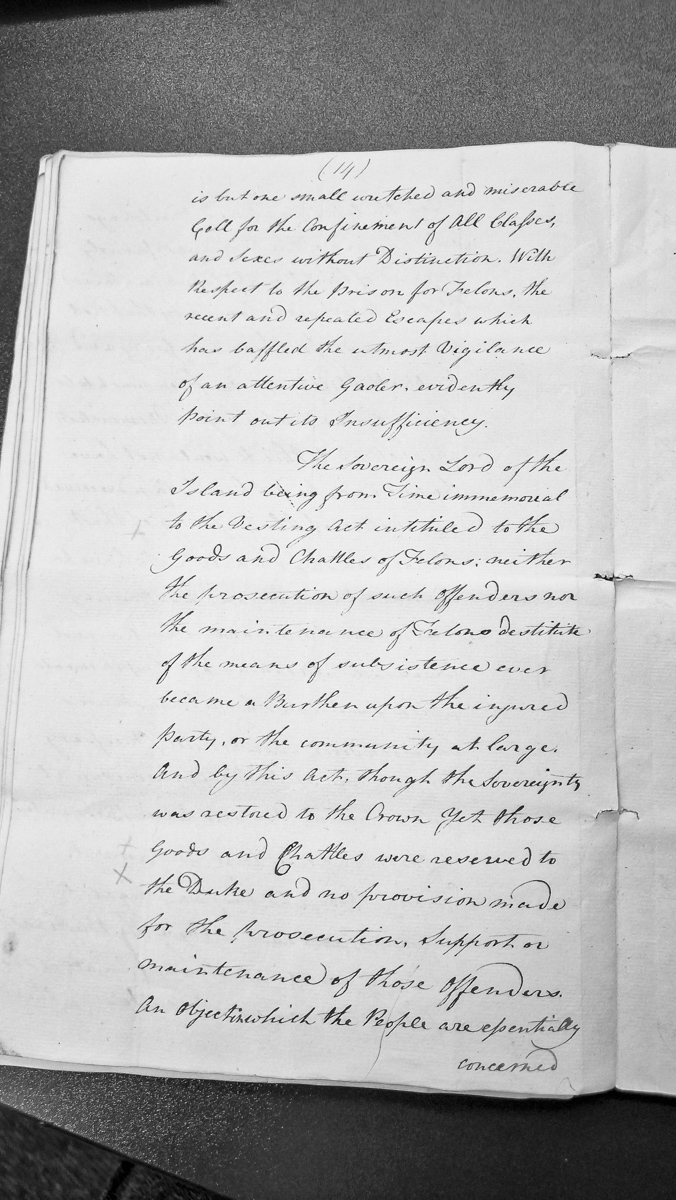 (14)
is but one small wretched and miserable
Goll for the Confinement of All Classes,
and Sexes without Distinction. With
Respect to the Prison for Felons, the
recent and repeated Escapes which
has baffled the utmost Vigilance
of an attentive Gaoler, evidently
point out its Insufficiency.
The Sovereign Lord of the
Island being from Time immemorial
to the Vesting Act intituled to the
Goods and Chattles of Felons; neither
the prosecution of such Offenders nor
the maintenance of Felons destitute
of the means of subsistence ever
became a Burthen upon the injured
party, or the community at large.
And by this Act, though the Sovereignty
was restored to the Crown Yet those
Goods and Chattles were reserved to
the Duke and no provision made
for the prosecution, Support or
maintenance of those Offenders.
An Object in which the People are essentially
concerned